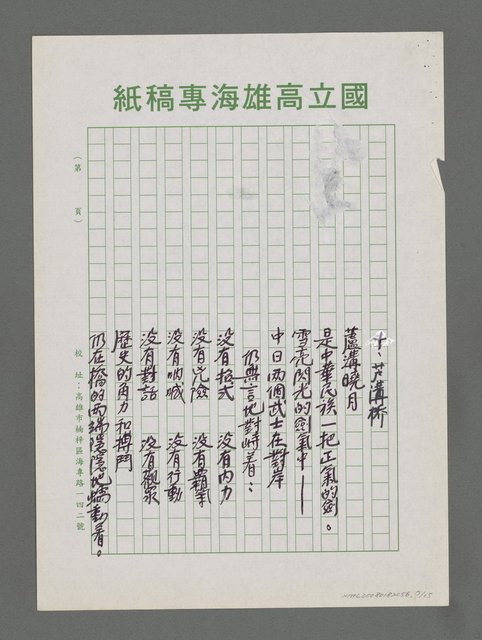 國立高雄海專稿紙
（第　頁）
校　址：高雄市楠梓區海專路一四二號
十、芦溝桥
蘆溝曉月
是中華民族一把正氣的劍。
雪亮閃光的劍氣中——
中日两個武士在對岸
仍無言地對峙着：
没有招式　没有內力
没有兇險　没有霸氣
没有吶喊　没有行動
没有對話　没有觀衆
歷史的角力和搏鬥
仍在橋的两端隱隱地蠕動着。